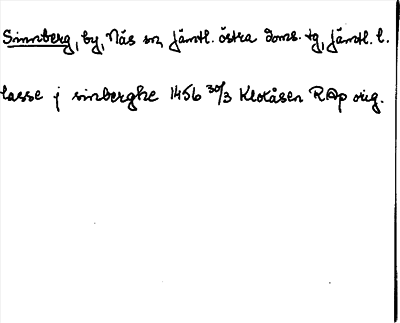 Sinnberg, by, Näs sn, Jämtl. östra doms. tg, Jämtl. l.
lasse j sinberghe 1456 30/3 Klotåsen RAp orig.